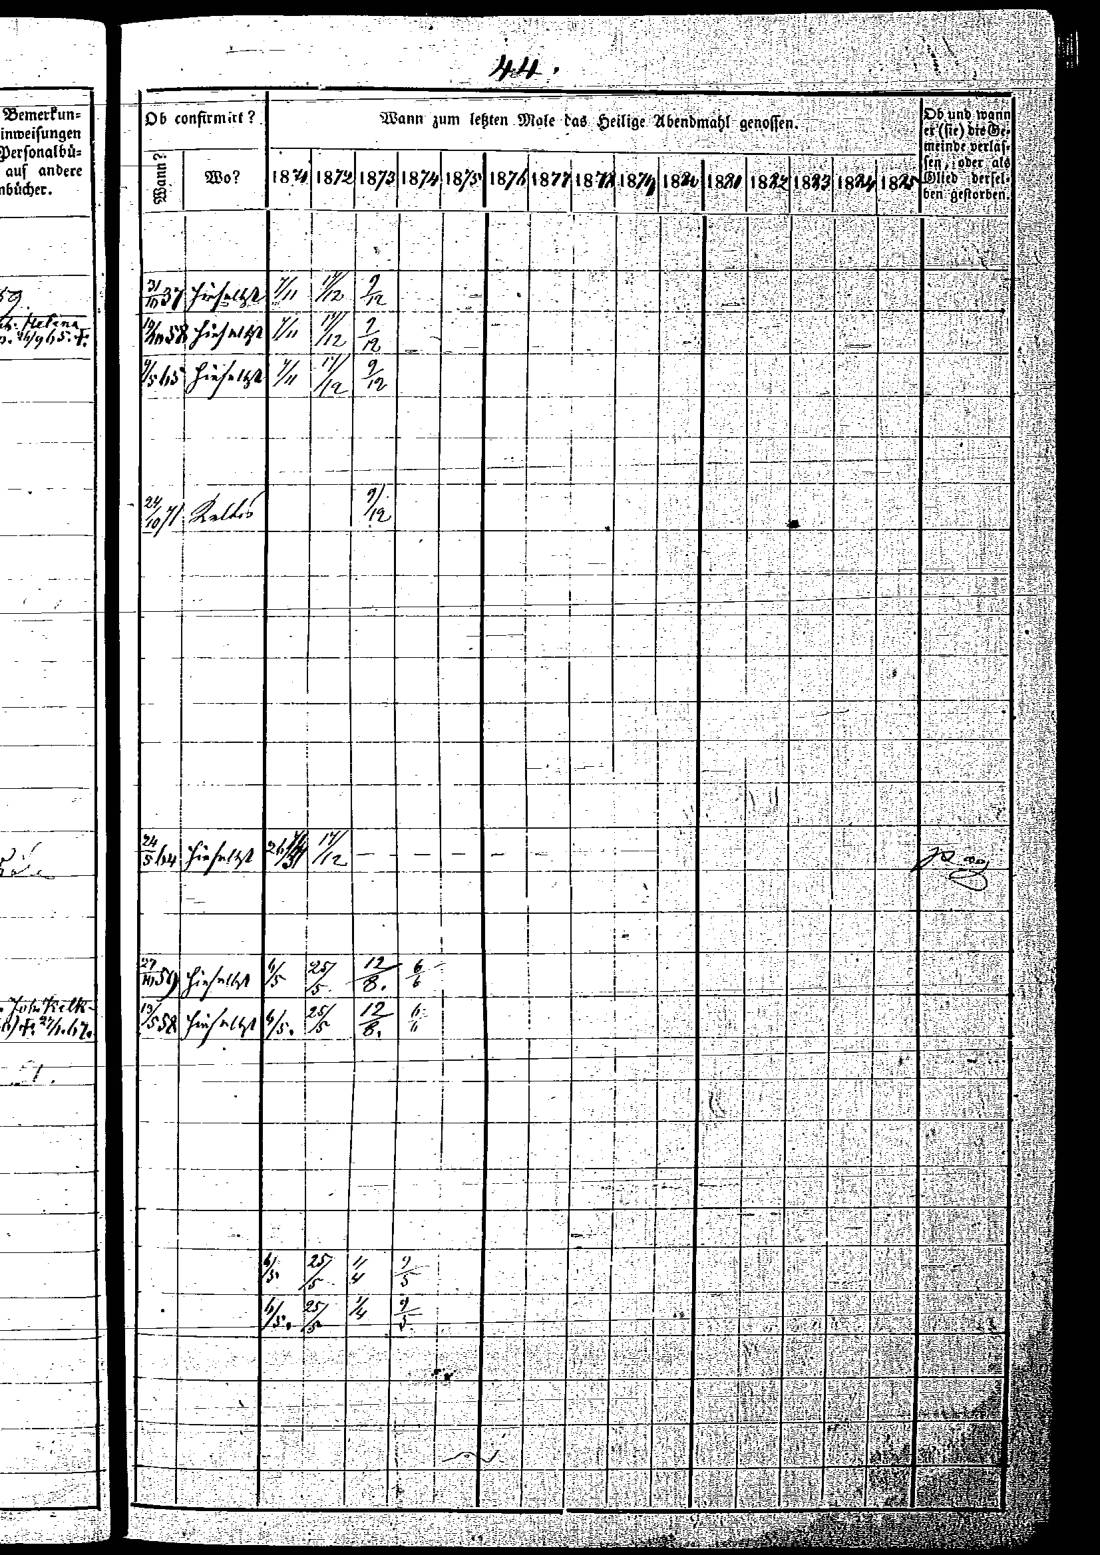 44.
Bemerkun-
inweisungen
Personalbü-
auf andere
nbücher.
Ob confirmirt?
Wann zum letzten Male das Heilige Abendmahl genossen.
Ob und wann
er (sie) die Ge-
meinde verlas-
sen, oder als
Glied dersel-
ben gestorben.
Wann? Wo? 1871 1872 1873 1874 1875 1876 1877 1878 1879 1880 1881 1882 1883 1884 1885
59
31/10 37 hieselbst 7/11 17/12 9/12
Helena
26/9 65. †.
58 hieselbst 7/11 17/12 9/12
9/5 65 hieselbst 7/11 17/12 9/12
24/10 71 9/12
24/5 64 hieselbst 17/12 — — — — —
27/10 59 hieselbst 6/5 25/5 12/8. 6/6
Joh. Kelk-
†. 27/1. 67.
19/5 58 hieselbst 6/5. 25/5 12/8. 6/6
6/5. 25/5 1/4 9/5
6/5. 25/5 1/4 9/5.